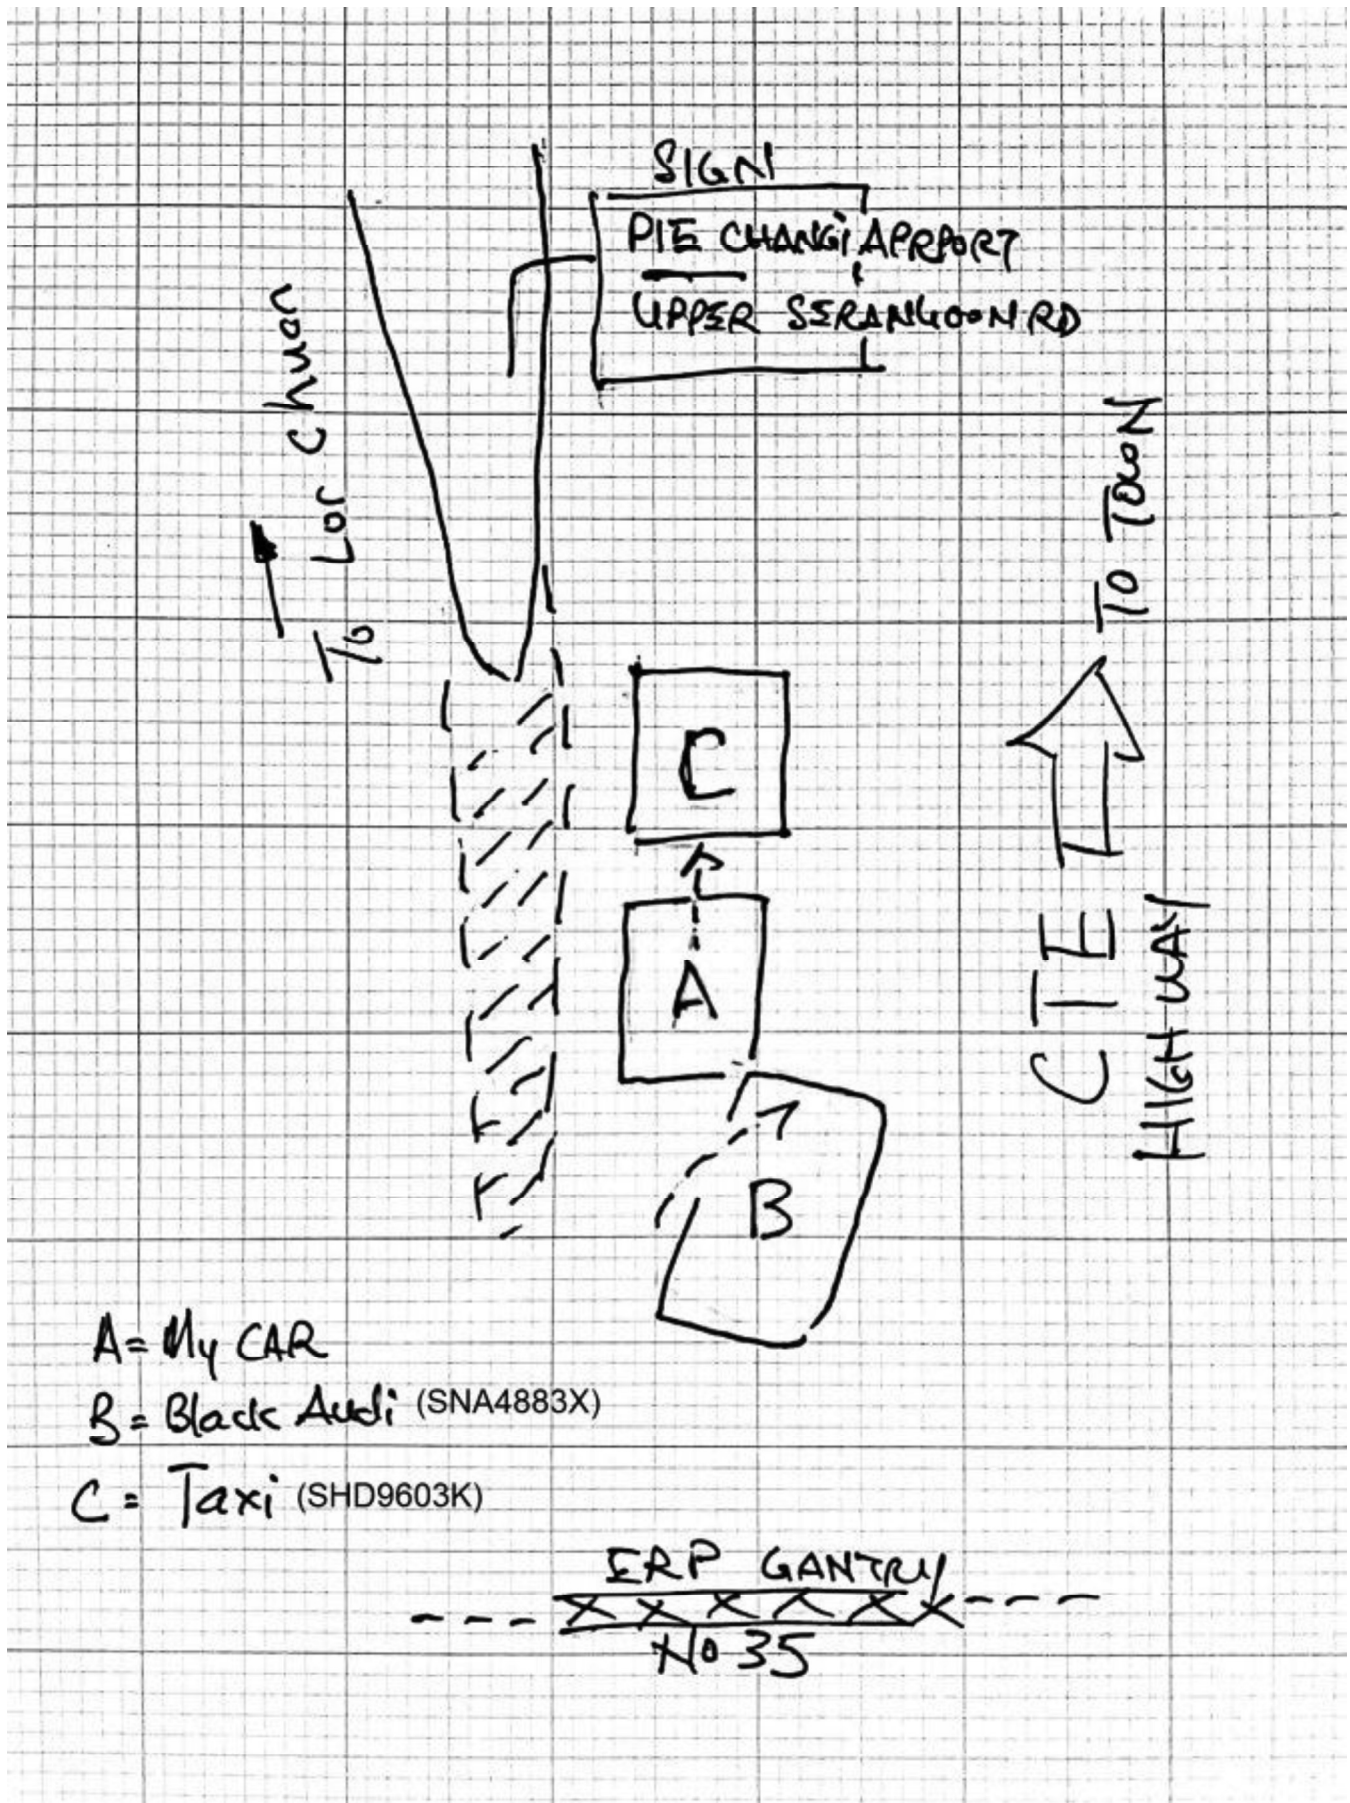 SIGN
PIE CHANGI APRPORT
UPPER SERANGOON RD
To Lor Chuan
TO TOWN
CTE
HIGHWAY
C
A
B
A = My CAR
B = Black Audi (SNA4883X)
C = Taxi (SHD9603K)
ERP GANTRY
No 35